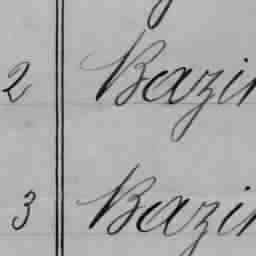 2 Bazin
3 Bazin